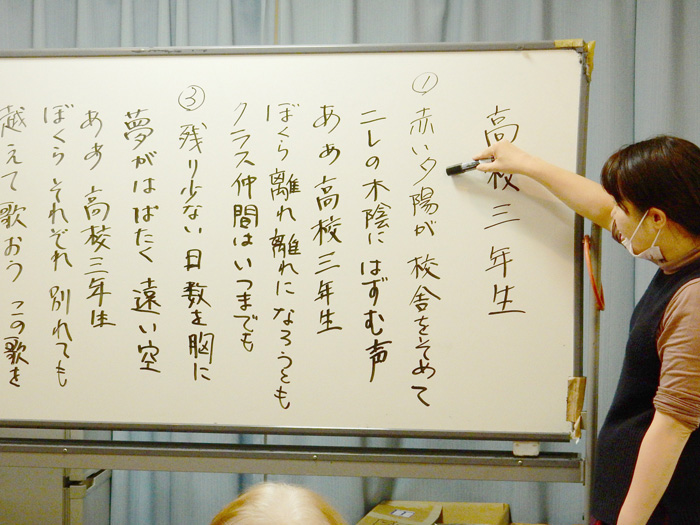 高校三年生
①赤い夕陽が 校舎をそめて
ニレの木陰に はずむ声
ああ 高校三年生
ぼくら 離れ離れに なろうとも
クラス仲間は いつまでも
③残り少ない 日数を胸に
夢がはばたく 遠い空
ああ 高校三年生
ぼくら それぞれ 別れても
越えて歌おう この歌を